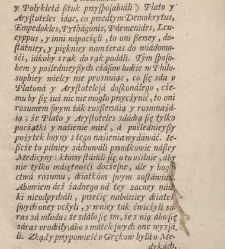 y Polykletá sztuk przysposabiáli) Pláto y
Arystoteles idąc, co przedtym Demokrytus,
Empedokles, Pythágoris, Pármenides, Leu-
cyppus, y inni nápoczęli, to oni szerzey, do-
státniey, y piękniey nam teraz do wiádomo-
ści, iákoby z rąk do rąk podáli. Tym sposo-
bem y poslednieyszych czásow ludzie w Philo-
sophiey wielky nie prosnuiąc, co się zda w
Platonà y Arystotelesà doskonáłego, cze-
mu by się iuż nic nie mogło przyczynić, to oni
rozumem swym ták rozszerzáią y rozmnażá-
ią, że Pláto y Arystoteles zdádzą się tylko
początki y násienie mieć, á poslednieyszy
pożytek hoyny z tego násienia wydáwáć. Ie-
szcze to pilniey záchowáli przodkowie nászey
Medicyny: ktorzy stáráli się o to usilnie, áby
nie tylko máiętności docześne, ále y bogá-
ctwá rozumu, dziatkom swym zostáwiáli.
Abowiem áci żadnego od tey zacney náuki
nie odpycháli, przecię nabárziey dziatek
swych oney vczyli, y w niey ták ćwiczyli zá-
raz zá młodu; że zdáło się im, że z nią ábo się
záraz vrodziły ábo z mátek swych one wyssá-
li. Zkądy przypowieść v Grekow byłá o Me-
dykách,